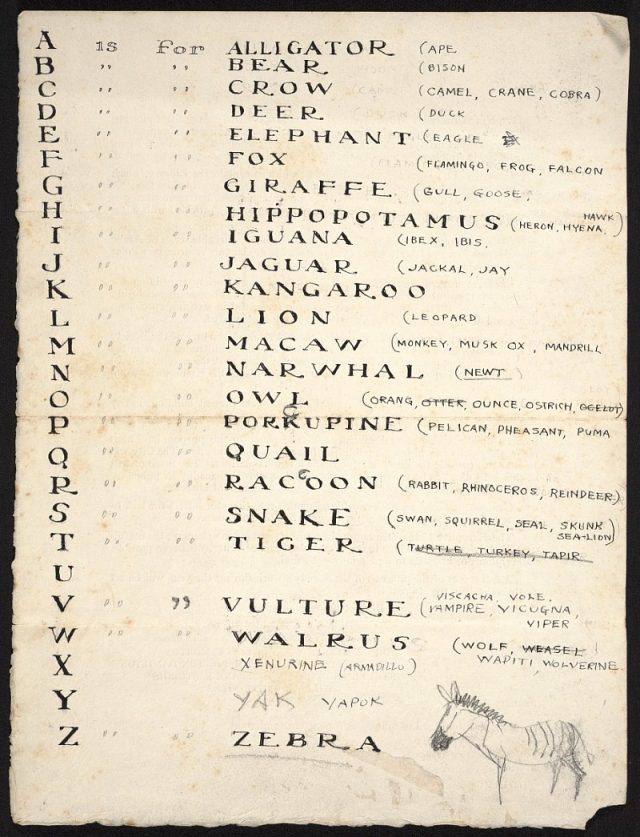 A is for ALLIGATOR (APE
B " " BEAR (BISON
C " " CROW (CAMEL, CRANE, COBRA)
D " " DEER (DUCK
E " " ELEPHANT (EAGLE
F " " FOX (FLAMINGO, FROG, FALCON
G " " GIRAFFE (GULL, GOOSE,
H " " HIPPOPOTAMUS (HERON, HYENA, HAWK)
I " " IGUANA (IBEX, IBIS,
J " " JAGUAR (JACKAL, JAY
K " " KANGAROO
L " " LION (LEOPARD
M " " MACAW (MONKEY, MUSK OX, MANDRILL
N " " NARWHAL (NEWT)
O " " OWL (ORANG, OTTER, OUNCE, OSTRICH, OCELOT)
P " " PORKUPINE (PELICAN, PHEASANT, PUMA
c
Q " " QUAIL
R " " RACOON (RABBIT, RHINOCEROS, REINDEER)
c
S " " SNAKE (SWAN, SQUIRREL, SEAL, SKUNK
SEA-LION)
T " " TIGER (TURTLE, TURKEY, TAPIR
U
VISCACHA, VOLE,
V " " VULTURE (VAMPIRE, VICUGNA,
VIPER
W " " WALRUS (WOLF, WEASEL
WAPITI, WOLVERINE
X XENURINE (ARMADILLO)
Y YAK YAPOK
Z " " ZEBRA